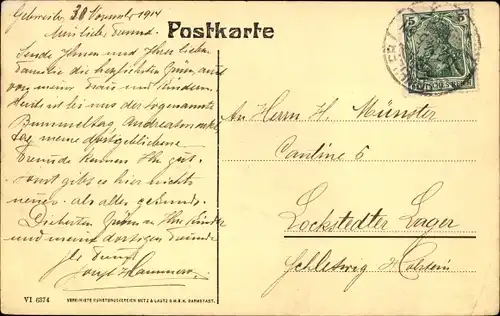 Gebweiler 30 November 1914
Postkarte
Mein lieber Freund.
Sende Ihnen und Ihrer lieben
Familie die herzlichsten Grüße, auch
von meiner Frau und Kindern.
Heute ist bei uns der sogenannte
Bummeltag Andreasmarkt
Freunde kennen Ihn gut.
sonst gibt es hier nichts
neues. als alles gesund.
Die besten Grüße an Ihre Kinder
und meine dortigen Freunde
Ihr Freund
An Herrn H. Münster
Cantine 6
Lockstedter Lager
Schleswig Holstein
5 5
VI 6374
VEREINIGTE KUNSTDRUCKEREIEN METZ & LAUTZ G.M.B.H. DARMSTADT.